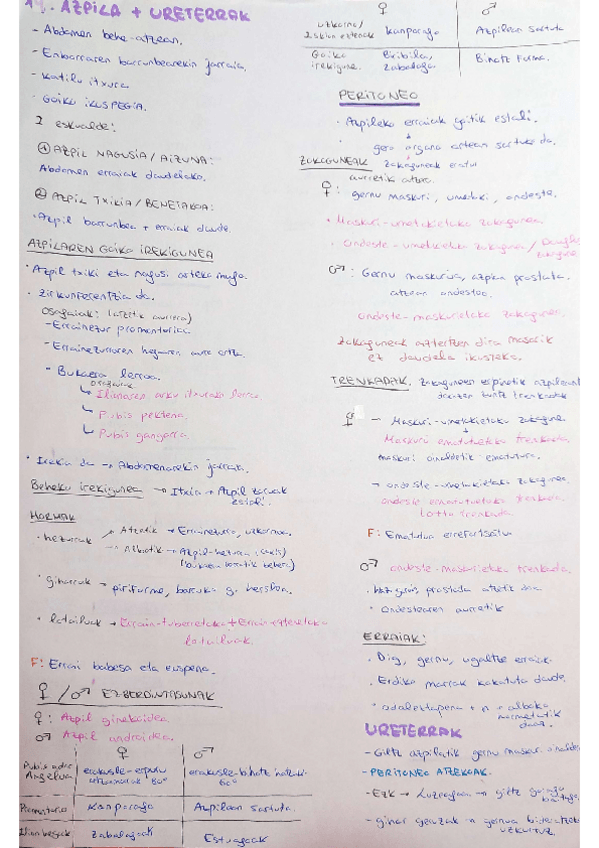 AZPILA + URETERRAK
- Abdomen behe-atzean.
- Enborraren barrunbearekin jarraia.
- Katilu itxura
- Goiko ikuspegia.
2 eskualde:
① AZPIL NAGUSIA / AIZUNA:
Abdomen erraiak daudelako.
② AZPIL TXIKIA / BENETAKOA:
· Azpil barrunbea + erraiak daude.
AZPILAREN GOIKO IREKIGUNEA
· Azpil txiki eta nagusi arteko muga.
· Zirkunferentzia da.
osagaiak: (atzetik aurrera)
- Errainezur promontorioa.
- Errainezurraren hegalaren aurre ertza.
- Bukaera lerroa.
osagaiak
↳ Ilionaren arku itxurako lerroa
↳ Pubis pektena.
↳ Pubis gangarra.
· Irekia da → Abdomenarekin jarraia.
Beheko irekigunea → Itxia → Azpil zoruak
estali.
HORMAK
· hezurrak → Atzetik → Errainezurra, uzkornoa.
→ Albotik → Azpil-hezurra (coxis)
(bukaera lerrotik behera)
· giharrak → piriforme, barruko g.
· lotailuak → Errain-tuberretako + Errain-
lotailuak.
F: Errai babesa eta euspena.
♀ / ♂ EZBERDINTASUNAK
♀: Azpil ginekoidea.
♂ Azpil androidea.
♀ ♂
Pubis azpiko Angelua erakusle-erpuru 80° erakusle-bihotz 60°
Promontorio Kanporago Azpilean sartuta
Ilion begiak Zabalagoak Estuagoak
♀ ♂
uzkorno / Iskion eztenak Kanporago Azpilean sartuta
Goiko irekigune. Biribila, zabalagoa Bihotz forma.
PERITONEO
· Azpileko erraiak goitik estali.
↓
gero organo artean sartuko da.
↓
ZAKAGUNEAK zakaguneak eratuz
aurretik atzera.
♀: gernu maskuri, umetoki, ondeste.
· Maskuri-umetokietako zakagunea.
· Ondeste-umetokietako zakagunea / Douglas zakagunea.
♂: Gernu maskuria, azpian prostata.
atzean ondestea.
ondeste-maskurietako zakagunea.
Zakaguneak aztertzen dira masarik
ez daudela ikusteko.
TRENKADAK. Zakaguneen
dauden
♀ - Maskuri-umetokietako zakagunea
↓
Maskuri ematutekiko trenkada.
maskuri oinaldetik-ematutura.
→ ondeste-umetokietako zakagunea.
ondeste ematutuetako trenkada.
F: Ematutua
♂ ondeste-maskurietako trenkada.
prostata atzetik doa
· Ondestearen aurretik
ERRAIAK:
· Dig, gernu, ugaltze erraiak.
· Erdiko marrak kokatuta daude.
· odoleztapena + n → alboko
hormetatik
doaz.
URETERRAK
- Giltz azpilatik gernu maskuri oinaldera.
- PERITONEO ATZEKOAK.
- Ezk → Luzeagoa → giltz gorago
baitago.
- gihar geruzak → gernua bideratzeko
uzkurtuz.